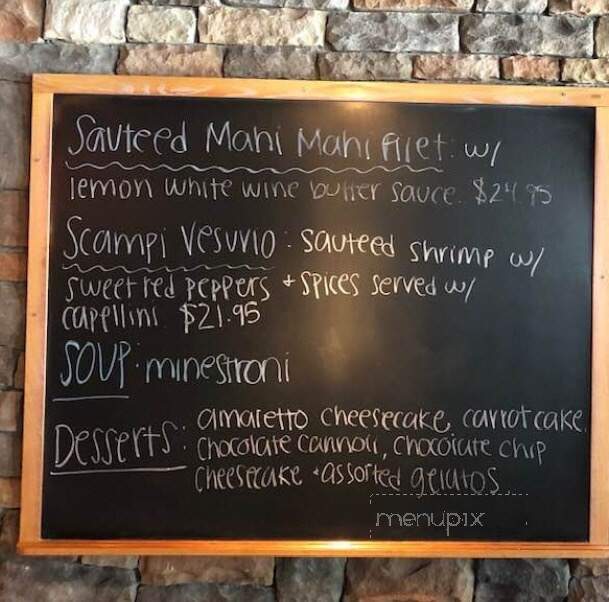 Sauteed Mahi Mahi Filet: w/
lemon white wine butter sauce. $24.95
Scampi Vesuvio: sauteed shrimp w/
sweet red peppers + spices served w/
capellini $21.95
SOUP: minestroni
Desserts: amaretto cheesecake, carrot cake,
chocolate cannoli, chocolate chip
cheesecake + assorted gelatos
menupix